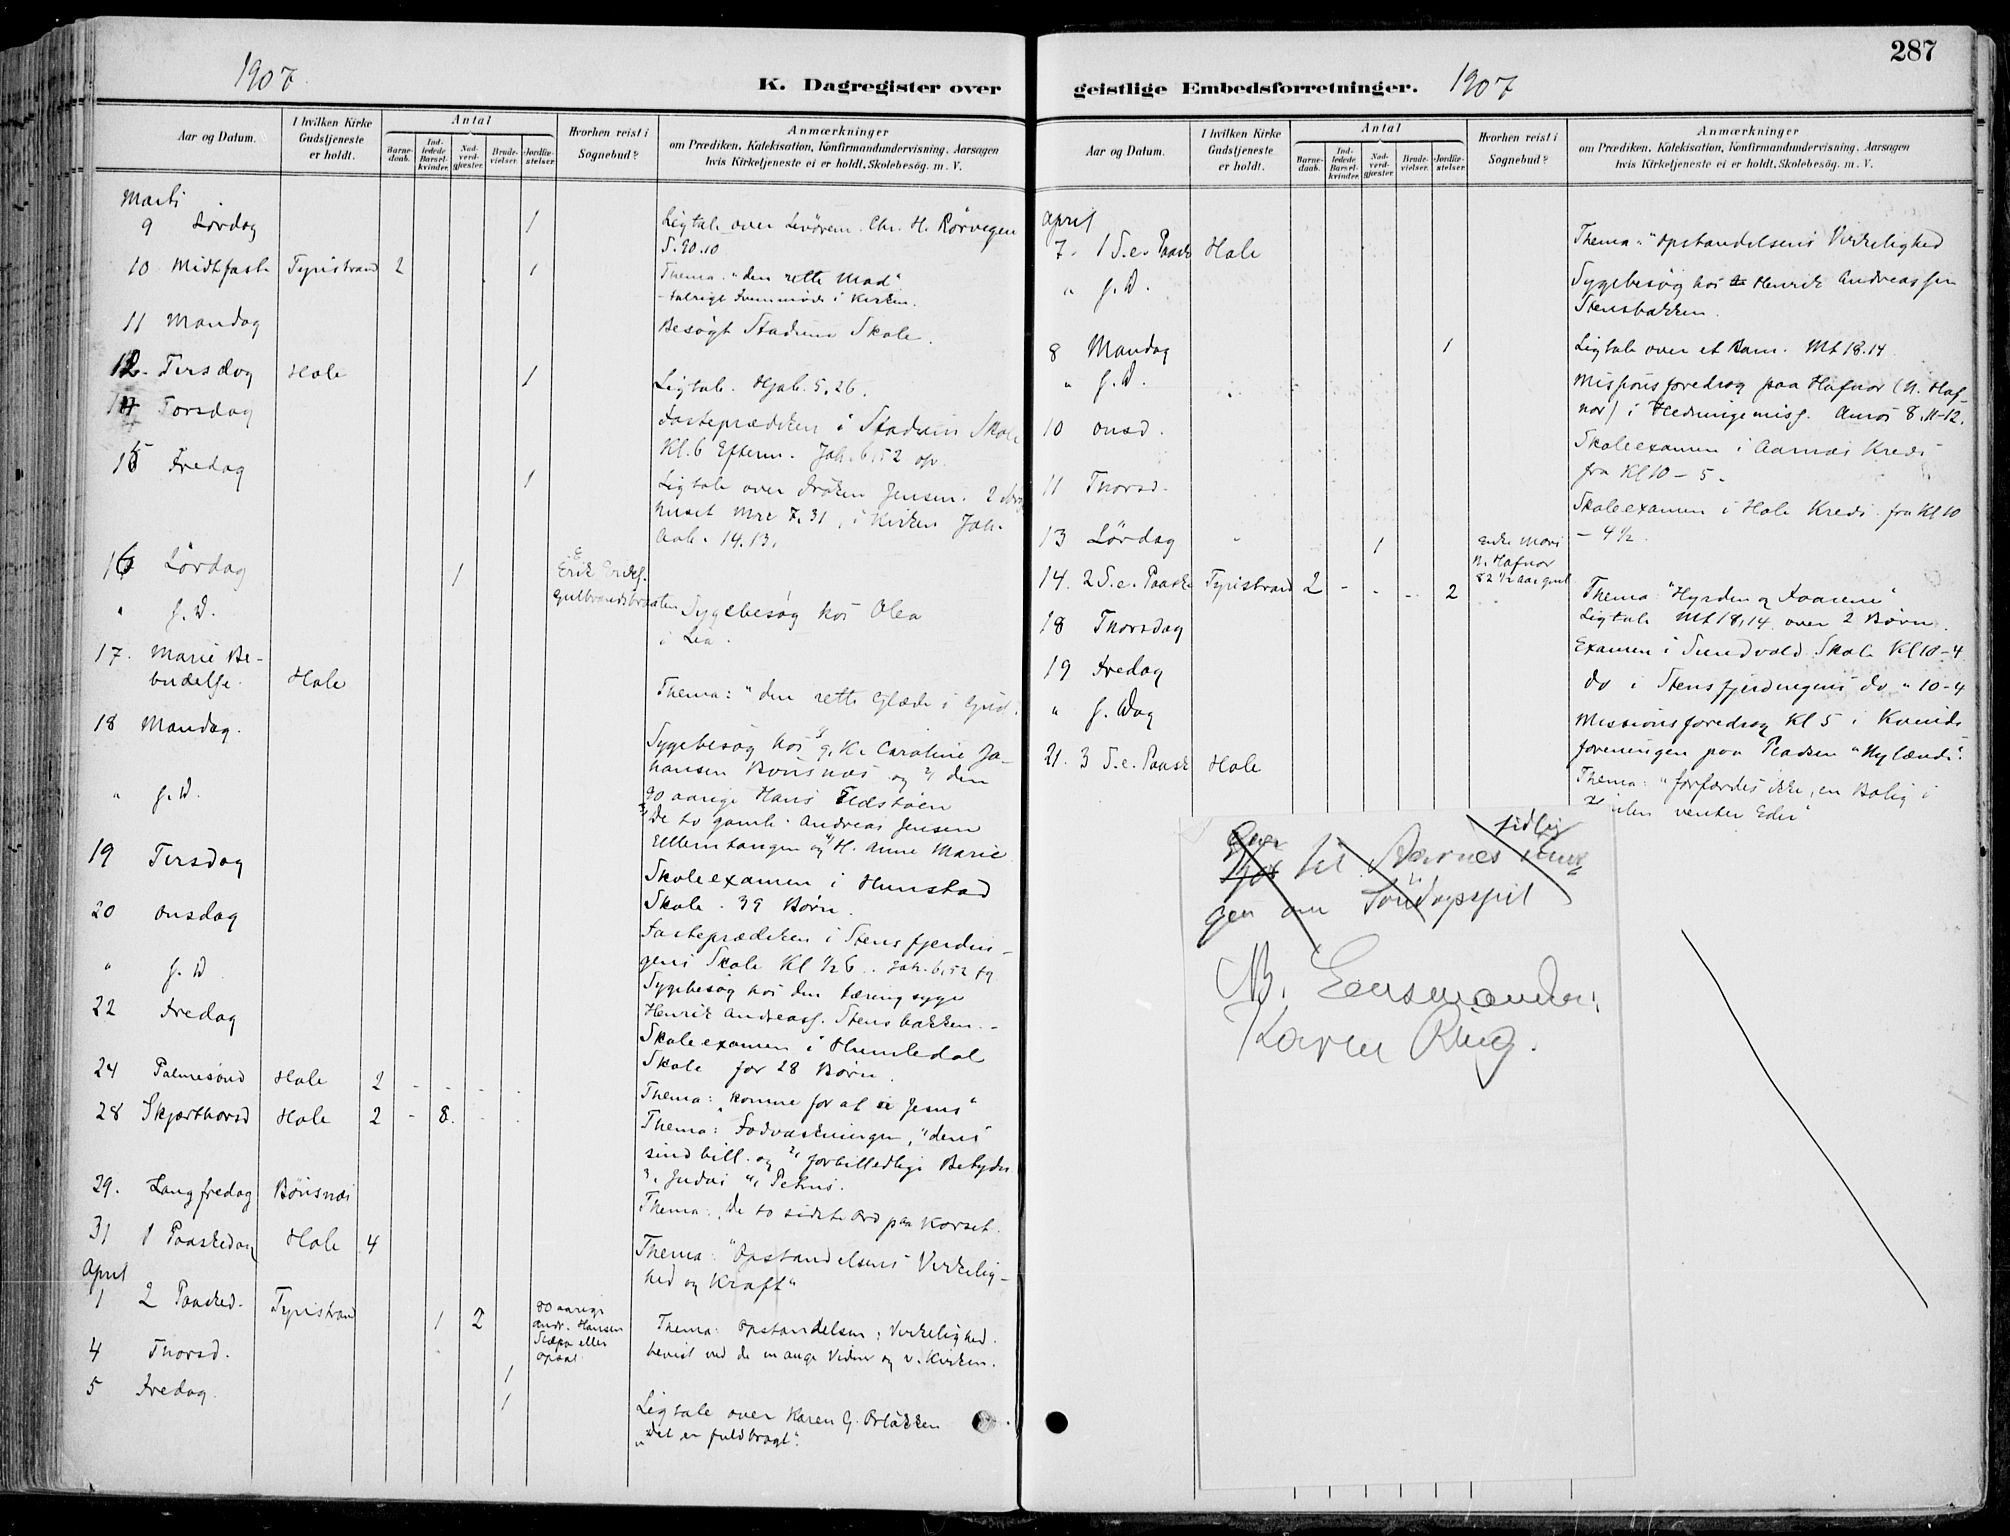 287
1907
K. Dagregister over
geistlige Embedsforretninger.
1907
Aar og Datum.
I hvilken Kirke Gudstjeneste er holdt.
Antal
Barnedaab.
Indledede Barselkvinder.
Nadverdgjester.
Brudevielser.
Jordfæstelser.
Hvorhen reist i Sognebud?
Anmærkninger
om Prædiken, Katekisation, Konfirmandundervisning, Aarsagen
hvis Kirketjeneste ei er holdt, Skolebesøg. m. V.
Marts
9 Lørdag 1 Ligtale over Chr. H. Rørvigen
S. 90.10
10 Midtfaste Tyristrand 2 1 Thema: "den rette Mad"
- talrigt Fremmøde i Kirken.
11 Mandag Besøgt Stadum Skole.
12. Tirsdag Hole 1 Ligtale. 5.26.
14 Torsdag Fasteprædiken i Stadum Skole
Kl. 6 Efterm. Joh. 6,52
15 Fredag 1 Ligtale over Frøken Jensen.
huset Mrc 7.31, i Kirken Joh.
Aab. 14.13.
16 Lørdag 1 Erik
Gulbrandsbraaten
" s. D. Sygebesøg hos Olea
i Lia.
17. Marie Be-
budelse. Hole Thema: "den rette Glæde i Gud.
18 Mandag. Sygebesøg hos Caroline Jo-
hansen Bønsnæs og 2) den
" s. D. 90 aarige Hans
3) De to gamle. Andreas Jensen
Ellemtangen og H. Anne Marie
19 Tirsdag Skoleexamen i Hunstad
Skole. 39 Børn.
20 Onsdag Fasteprædiken i Stensfjerdin-
gens Skole Kl ½6. Joh. 6,52 fg
" s. D Sygebesøg hos den tæringsyge
Henrik Andreass. Stensbakken. -
22 Fredag Skoleexamen i Humledal
Skole for 28 Børn.
24 Palmesønd Hole 2 - - - - Thema: "komme for at se Jesus"
28 Skjærthorsd Hole 2 - 8. - . Thema: Fodvaskningen, "dens
sindbill. og 2, forbilledlige Betydn
3, Judas 4, Petrus.
29. Langfredag Bønsnæs Thema: De to sidste Ord paa Korset.
31 1 Paaskedag Hole 4 Thema: "Opstandelsens Virkelig-
hed og Kraft"
April
1 2 Paasked. Tyristrand 1 2 80 aarige
Andr. Hansen
eller
Opsal
Thema: Opstandelsens Virkelighed.
bevist ved de mange Vidner og v. Kirken.
4 Thorsd. 1
5 Fredag. 1 Ligtale over Karen G. Orløkken
"Det er fuldbragt".
Aar og Datum.
I hvilken Kirke Gudstjeneste er holdt.
Antal
Barnedaab.
Indledede Barselkvinder.
Nadverdgjester.
Brudevielser.
Jordfæstelser.
Hvorhen reist i Sognebud?
Anmærkninger
om Prædiken, Katekisation, Konfirmandundervisning, Aarsagen
hvis Kirketjeneste ei er holdt. Skolebesøg. m. V.
April
7. 1 S. e. Paaske Hole Thema: "Opstandelsens Virkelighed
" s. D. Sygebesøg hos Henrik Andreassen
Stensbakken.
8 Mandag 1 Ligtale over et Barn. Mt 18.14
" s. D. Missionsforedrag paa Hafnor (N. Haf-
nor) i Hedningemiss. Amos 8.11-12.
10 Onsd. Skoleexamen i Aarnæs Kreds
fra Kl 10 - 5.
11 Thorsd. Skoleexamen i Hole Kreds fra Kl 10
- 4½.
13 Lørdag " 1 Enke Mari
N. Hafnor
82½ aar gml
14. 2 S. e. Paaske Tyristrand 2 - - - 2 Thema: "Hyrden og Faarene"
Ligtale Mt 18,14 over 2 Børn.
18 Thorsdag Examen i Sundvold Skole Kl 10-4
19 Fredag do i Stensfjerdingens do " 10-4
" s. Dag Missionsforedrag Kl 5 i Kvinde
foreningen paa Pladsen "Nylænde".
21. 3 S. e. Paaske Hole Thema: "forfærdes ikke, en Bolig i
Himlen venter Eder"
til Aarnæs
gen om Søndagsspil
N. Gensmanden.
Karen Ring.